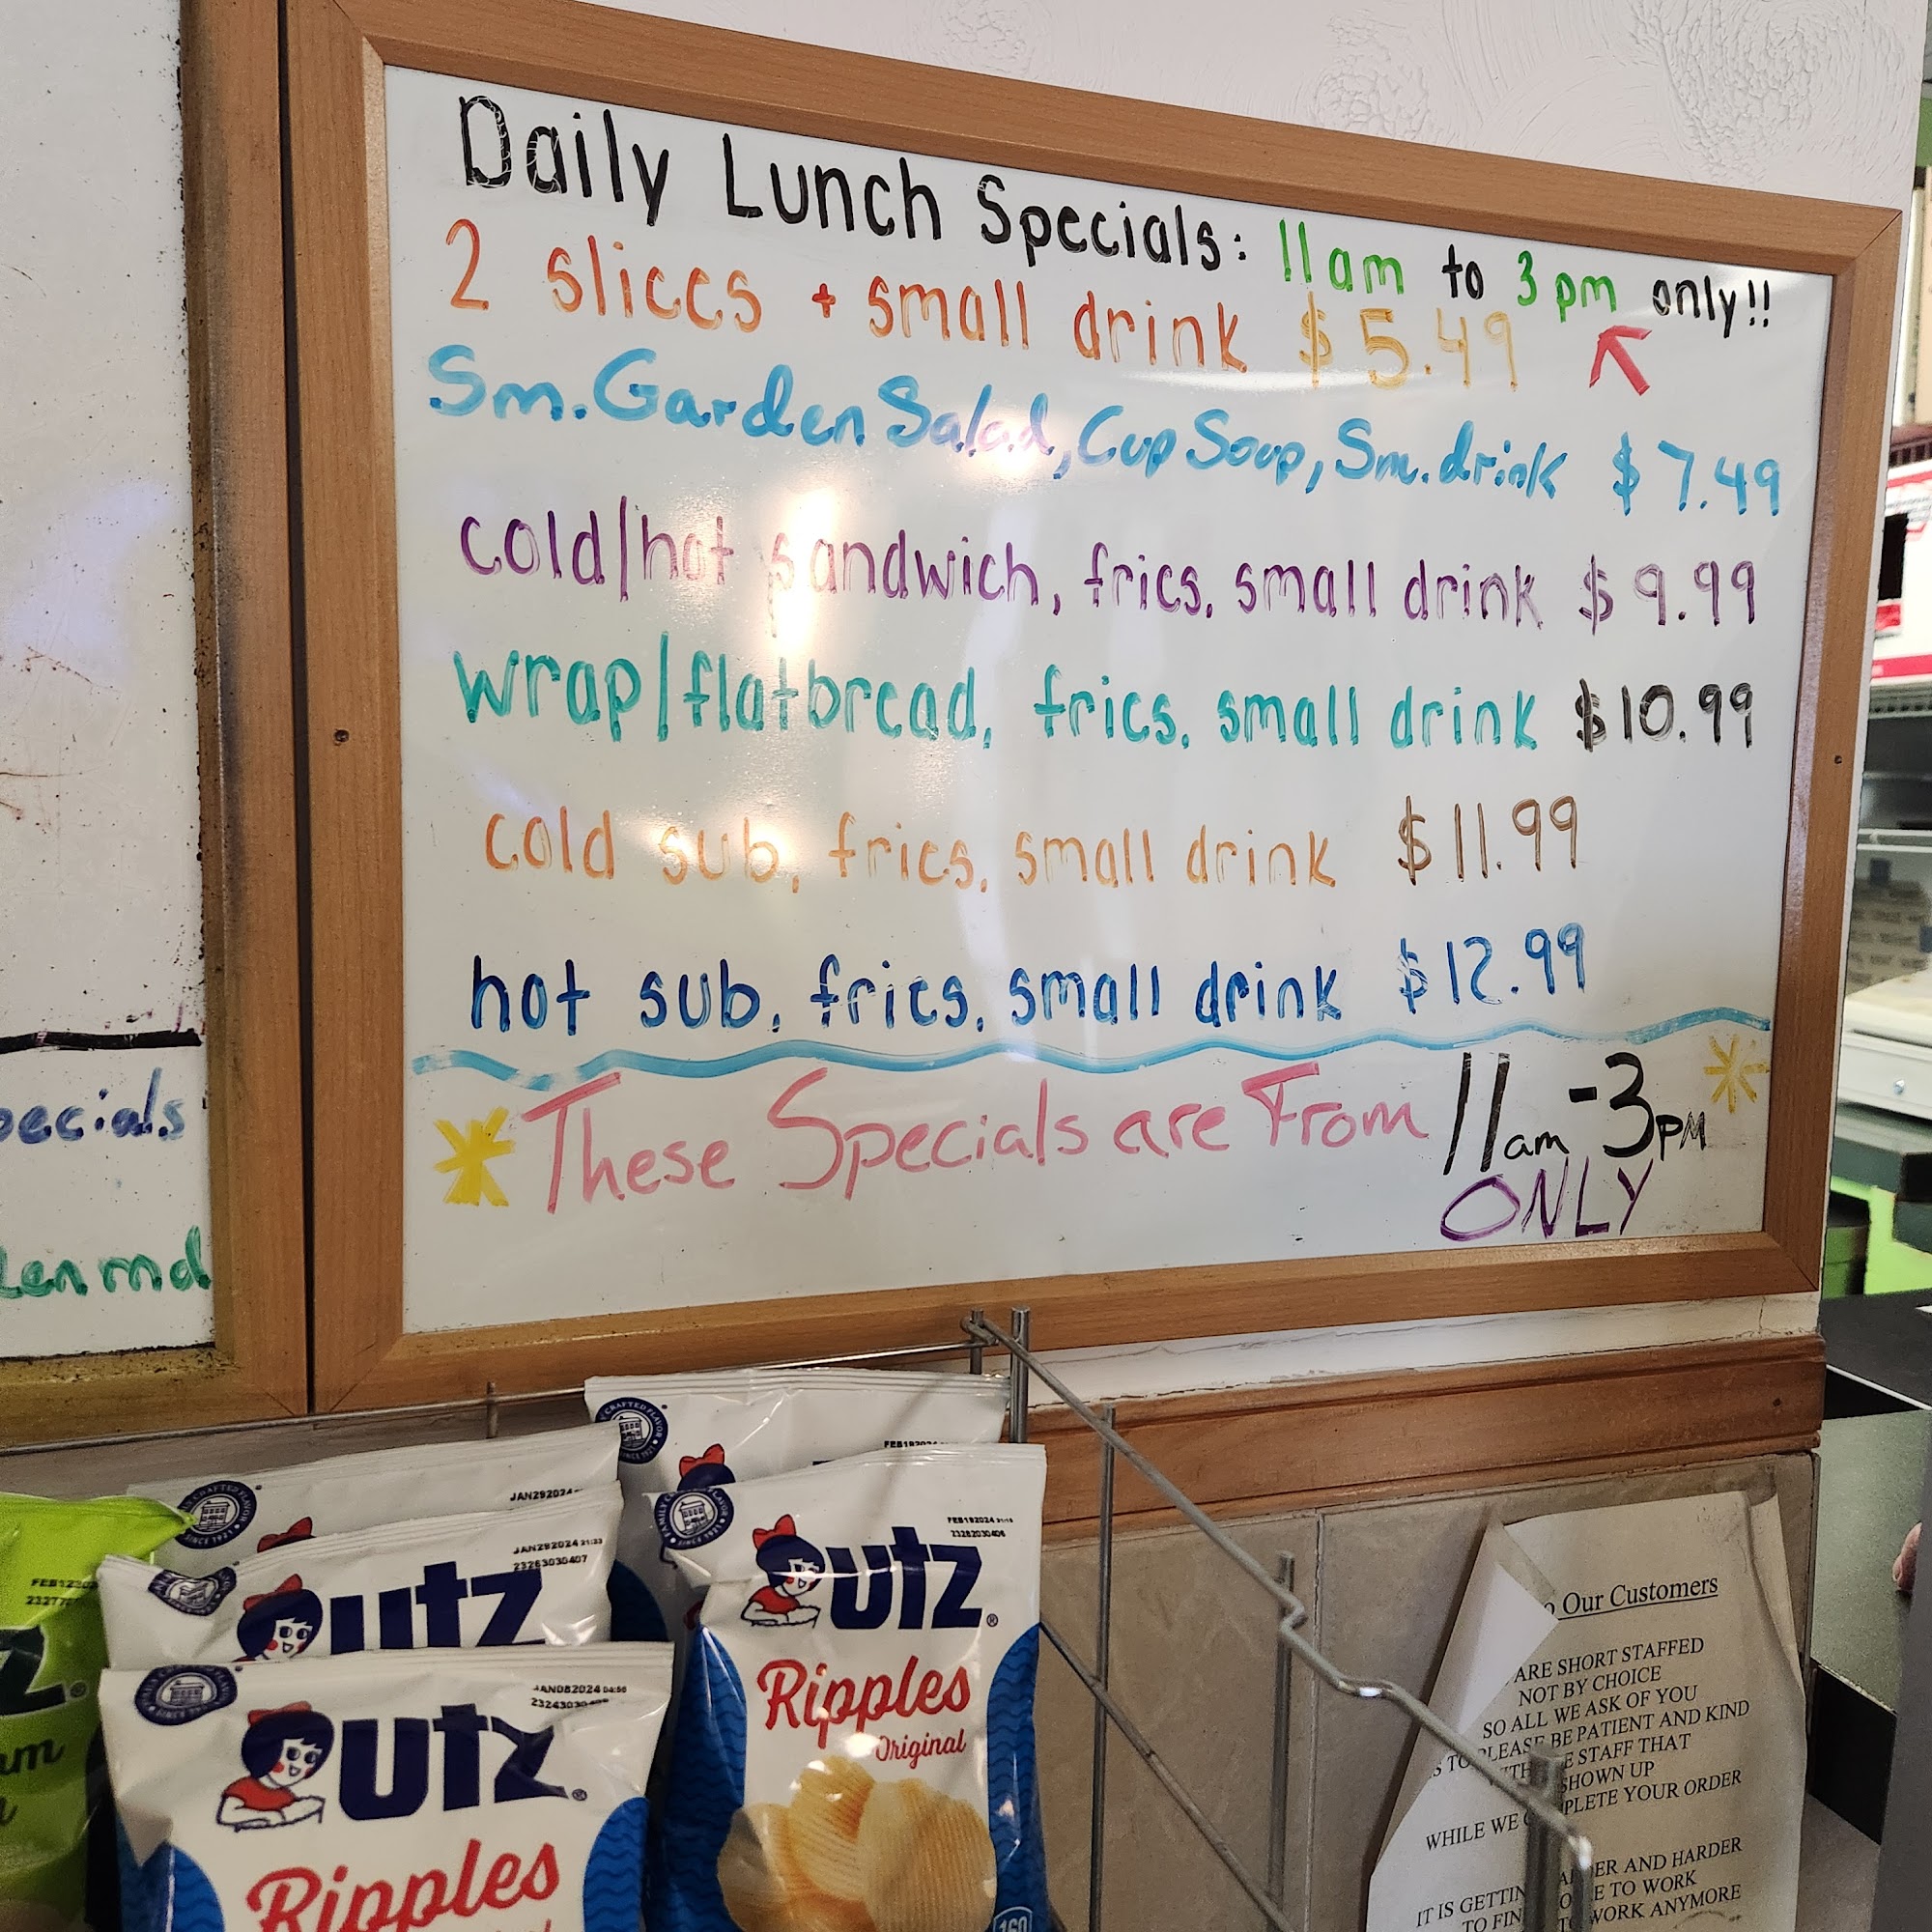 Daily Lunch Specials: 11am to 3pm only!!
2 slices + small drink $5.49
Sm. Garden Salad, Cup Soup, Sm. drink $7.49
cold/hot sandwich, fries, small drink $9.99
wrap/flatbread, fries, small drink $10.99
cold sub, fries, small drink $11.99
hot sub, fries, small drink $12.99
These Specials are From 11am - 3PM
ONLY
pecials
md
FEB192024
JAN292024
JAN292024 21:33
23263030407
utz
FEB192024
23282030406
utz®
Ripples
Original
160
JAN082024 04:56
utz®
Ripples
Our Customers
ARE SHORT STAFFED
NOT BY CHOICE
SO ALL WE ASK OF YOU
TO PLEASE BE PATIENT AND KIND
STAFF THAT
SHOWN UP
WHILE WE PLETE YOUR ORDER
ER AND HARDER
IT IS GETTIN E TO WORK
TO FIN WORK ANYMORE